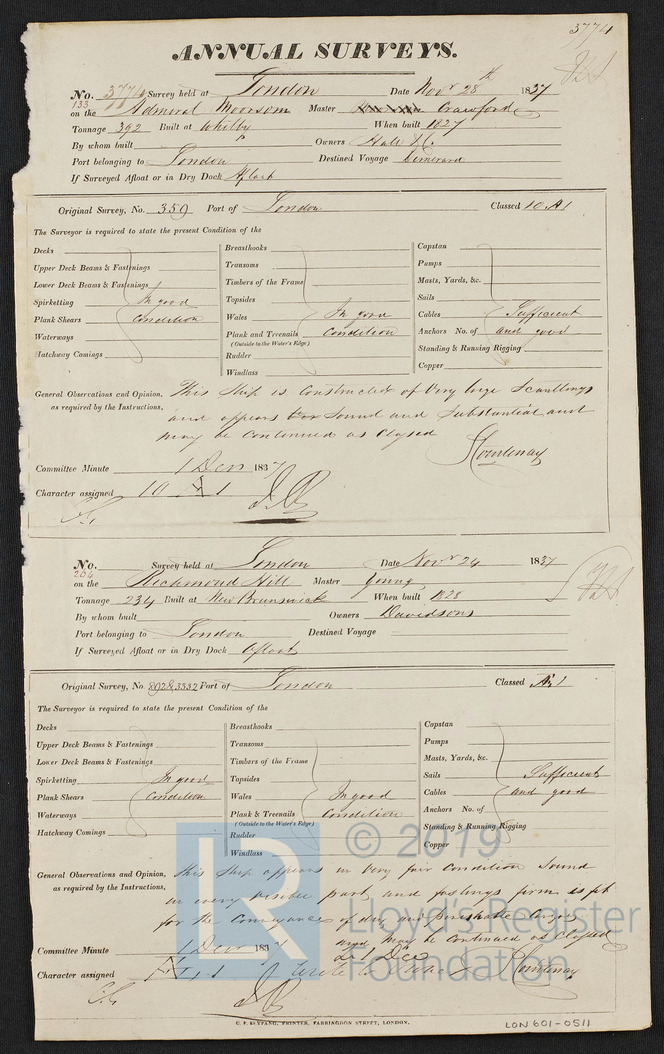 3774
ANNUAL SURVEYS.
No. 3774 Survey held at London Date Novr 28th 1837
133
on the Admiral Moorsom Master Crawford
Tonnage 392 Built at Whitby When built 1827
By whom built Owners Hall &C.
Port belonging to London Destined Voyage Demerara
If Surveyed Afloat or in Dry Dock Afloat
Original Survey, No. 359 Port of London Classed 10 A1
The Surveyor is required to state the present Condition of the
Decks
Upper Deck Beams & Fastenings
Lower Deck Beams & Fastenings
Spirketting In good
Plank Shears Condition
Waterways
Hatchway Comings
Breasthooks
Transoms
Timbers of the Frame
Topsides
Wales In good
Plank and Treenails Condition
(Outside to the Water's Edge)
Rudder
Windlass
Capstan
Pumps
Masts, Yards, &c.
Sails
Cables Sufficient
Anchors No. of and good
Standing & Running Rigging
Copper
General Observations and Opinion, This Ship is Constructed of Very large Scantlings
as required by the Instructions, and appears sound and Substantial and
may be Continued as Classed
Courtenay
Committee Minute 1 Decr 1837
Character assigned 10 A 1
No. Survey held at London Date Novr 24 1837
204
on the Richmond Hill Master Young
Tonnage 234 Built at New Brunswick When built 1828
By whom built Owners Davidsons
Port belonging to London Destined Voyage
If Surveyed Afloat or in Dry Dock Afloat
Original Survey, No 892&3332 Port of London Classed Æ 1
The Surveyor is required to state the present Condition of the
Decks
Upper Deck Beams & Fastenings
Lower Deck Beams & Fastenings
Spirketting In good
Plank Shears Condition
Waterways
Hatchway Comings
Breasthooks
Transoms
Timbers of the Frame
Topsides
Wales In good
Plank & Treenails Condition
(Outside to the Water's Edge)
Rudder
Windlass
Capstan
Pumps
Masts, Yards, &c.
Sails Sufficient
Cables and good
Anchors No. of
Standing & Running Rigging
Copper
General Observations and Opinion, This Ship appears in Very fair Condition Sound
as required by the Instructions, in every visible part and fastings firm is fit
for the Conveyance of dry and perishable Cargoes
and may be Continued as Classed
Committee Minute 1 Decr 1837
Character assigned Æ 1
Courtenay
C. F. SEYFANG, PRINTER, FARRINGDON STREET, LONDON.
LON 601-0511
© 2019
LR Lloyd's Register
Foundation